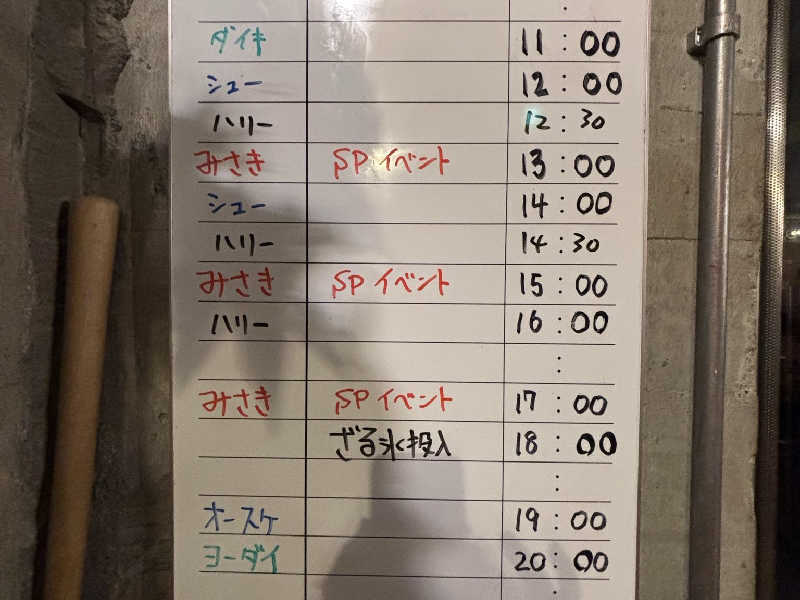 :
ダイキ 11:00
シュー 12:00
ハリー 12:30
みさき SPイベント 13:00
シュー 14:00
ハリー 14:30
みさき SPイベント 15:00
ハリー 16:00
:
みさき SPイベント 17:00
ざる氷投入 18:00
:
オースケ 19:00
ヨーダイ 20:00
: